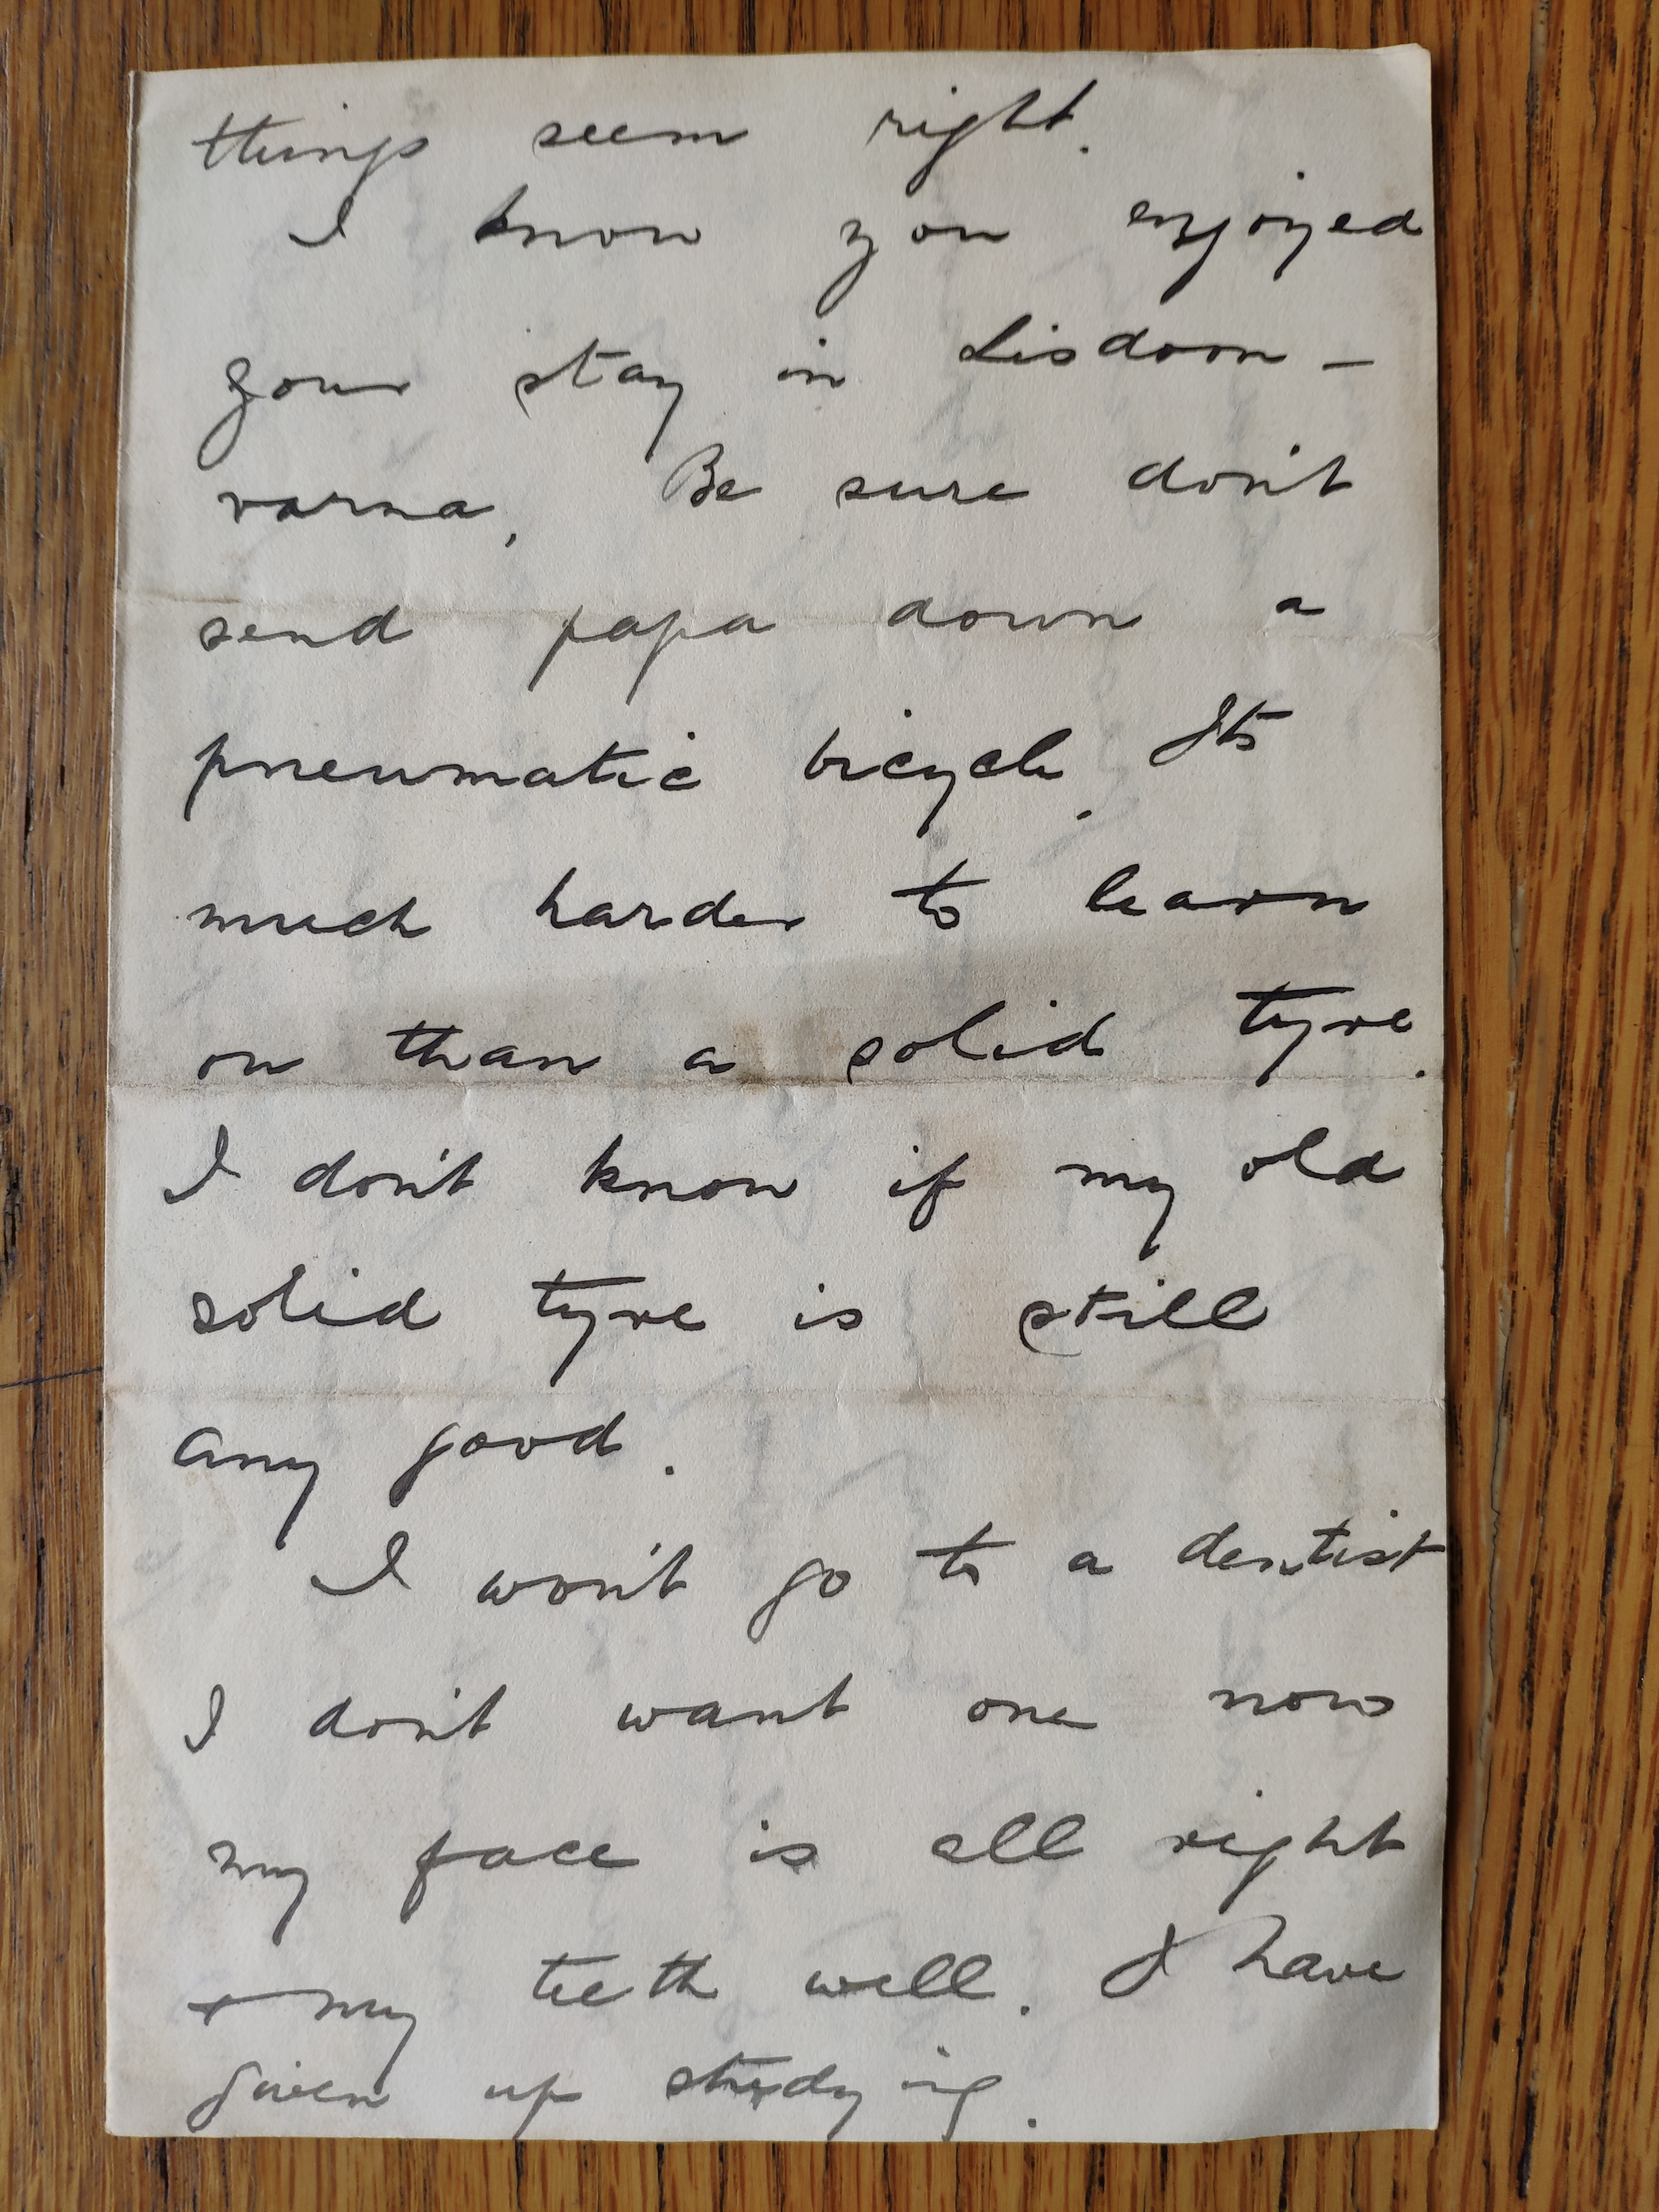 things seem right.
I know you enjoyed
your stay in Lisdoon-
varna, Be sure don't
send papa down a
pneumatic bicycle. Its
much harder to learn
on than a solid tyre.
I don't know if my old
solid tyre is still
any good.
I won't go to a dentist
I don't want one now
my face is all right
+ my teeth well. I have
given up studying.